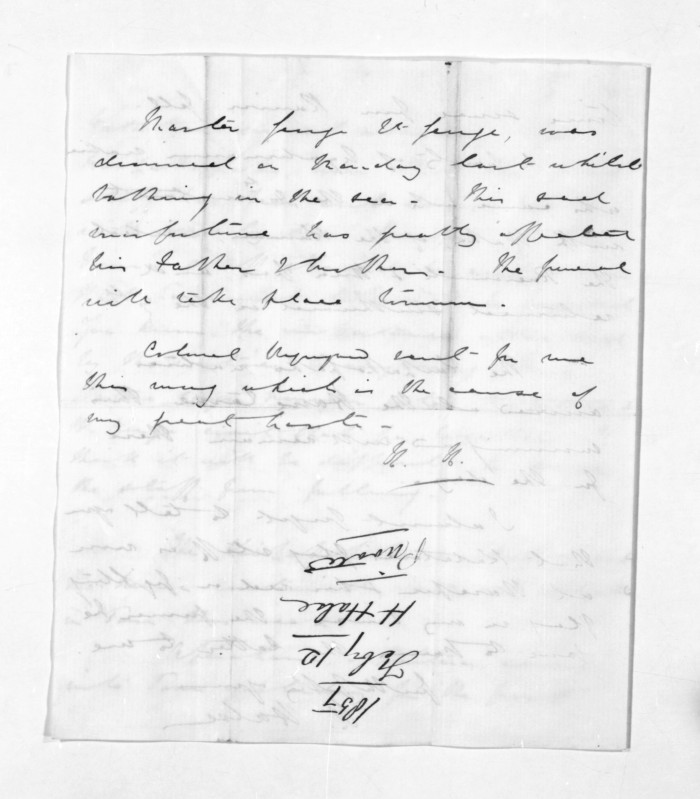 Master George St. George, was
drowned on Monday last while
bathing in the sea - This sad
misfortune has greatly affected
his Father & brothers. The funeral
will take place tomorrow.
Colonel Wynyard sent for me
this morng which is the cause of
my great haste -
H. H.
1857
Feby 12
H Halse
Private